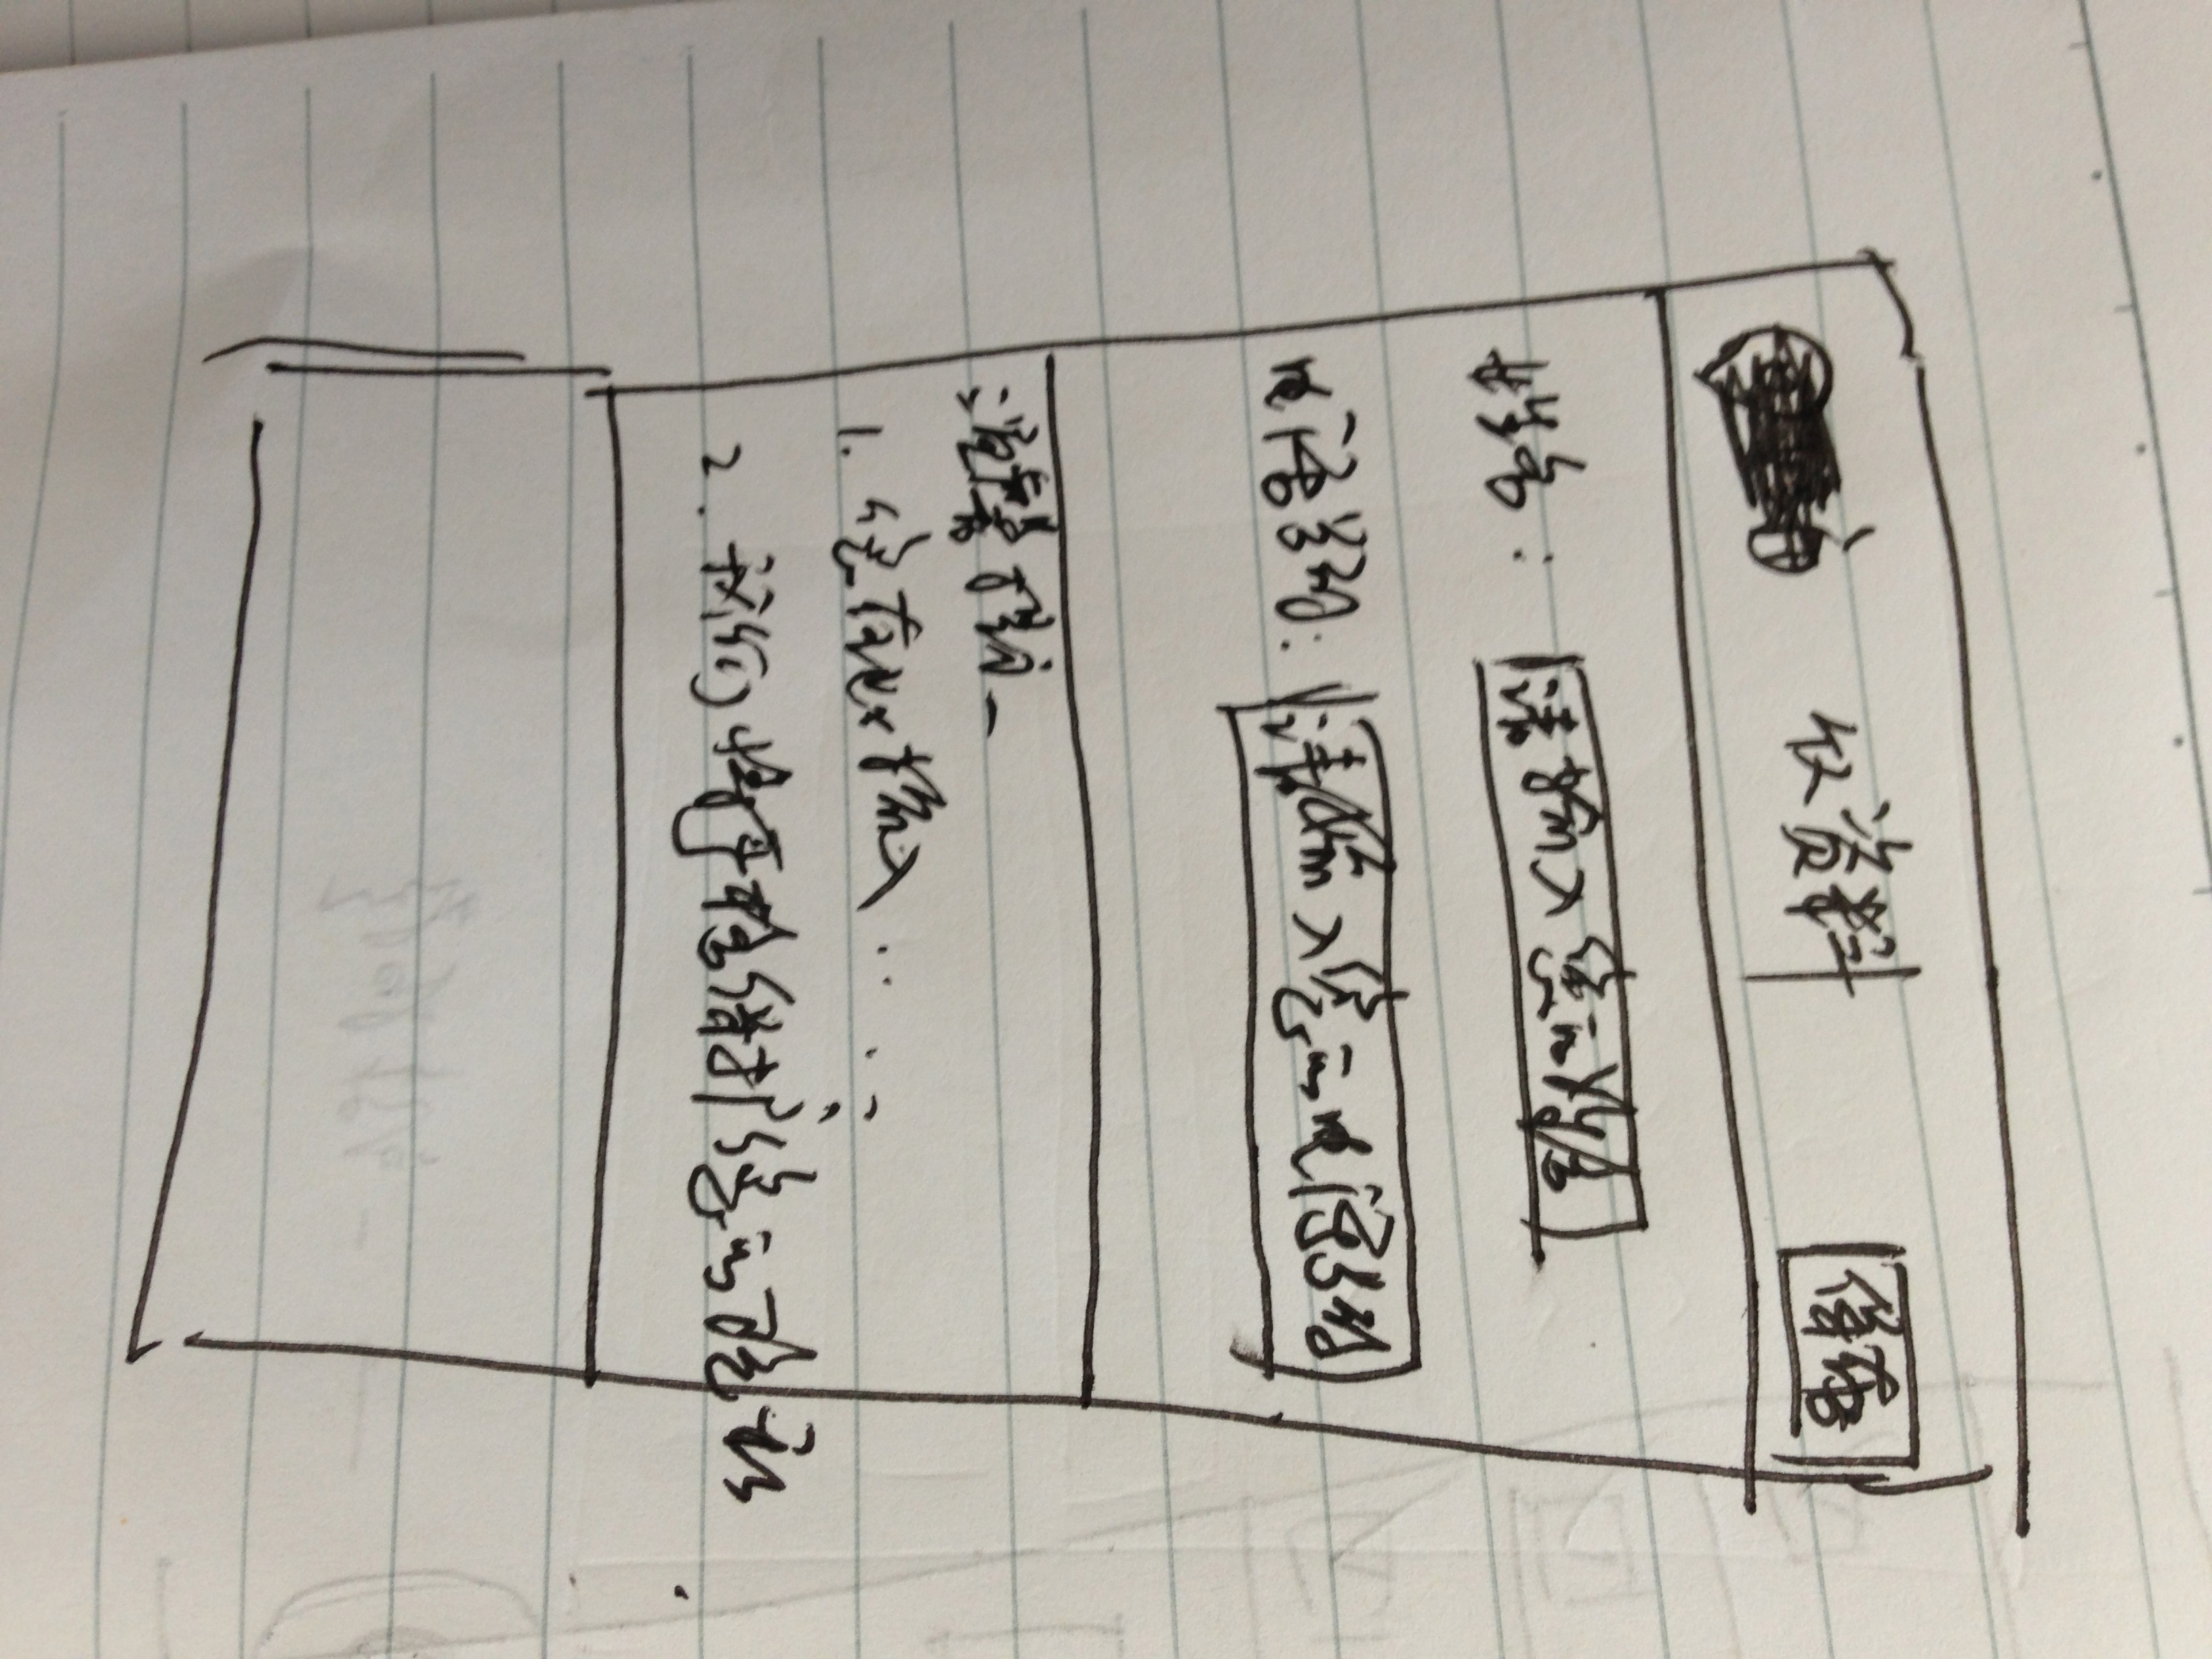 收资料 储存
姓名： 请输入您的姓名
电话号码： 请输入您的电话号码
温馨提示
1. 您在此输入……
2. 我们将严格保护您的隐私